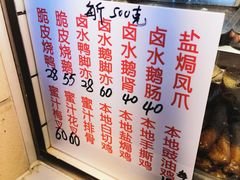 新 500克
盐焗凤爪
卤水鹅肠 40
卤水鹅肾 40
卤水鹅脚亦 60
卤水鸭脚亦 38
脆皮烧鹅 55
脆皮烧鸭 28
本地豉油鸡
本地手撕鸡
本地盐焗鸡
本地白切鸡
蜜汁排骨
蜜汁叉花 60
蜜汁梅叉 60